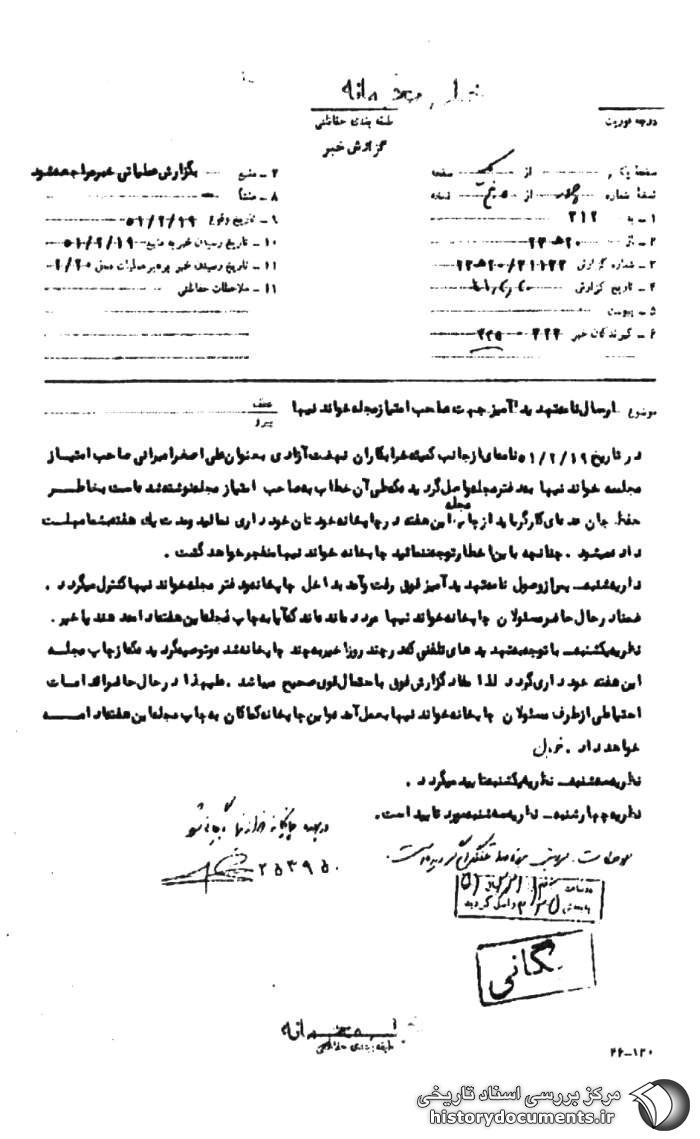 طبقه بندی حفاظتی
درجه فوریت
گزارش خبر
صفحه یک از یک صفحه
نسخه شماره از پنج نسخه
۱ - به ۳۱۲
۲ - از ۲۰ ه‍ ۲۳
۳ - شماره گزارش
۴ - تاریخ گزارش
۵ - پیوست
۶ - گیرندگان خبر
۷ - منبع بگزارش عملیاتی خبر مراجعه شود
۸ - منشأ
۹ - تاریخ وقوع ۵۱/۲/۱۹
۱۰ - تاریخ رسیدن خبر به منبع ۵۱/۲/۱۹
۱۱ - تاریخ رسیدن خبر به رهبر عملیات
۱۱ - ملاحظات حفاظتی
موضوع ارسال نامه تهدید آمیز جهت صاحب امتیاز مجله خواندنیها
عطف
پیرو
در تاریخ ۵۱/۲/۱۹ نامه‌ای از جانب کمیته خرابکاران نهضت آزادی بعنوان علی اصغر امیرانی صاحب امتیاز
مجله خواندنیها به دفتر مجله واصل گردیده که طی آن خطاب به صاحب امتیاز مجله نوشته شده است بخاطر
حفظ جان عده‌ای کارگر باید از چاپ مجله این هفته در چاپخانه خودتان خودداری نمائید و مدت یک هفته بشما مهلت
داده میشود . چنانچه باین اخطار توجه ننمائید چاپخانه خواندنیها منفجر خواهد گشت .
نظریه شنبه - پس از وصول نامه تهدید آمیز فوق رفت و آمد بداخل چاپخانه و دفتر مجله خواندنیها کنترل میگردد .
ضمناً در حال حاضر مسئولان چاپخانه خواندنیها مردد مانده‌اند که آیا به چاپ مجله این هفته ادامه دهند یا خیر .
نظریه یکشنبه - با توجه به تهدید های تلفنی که در چند روز اخیر به چند چاپخانه شده و توصیه گردیده که از چاپ مجله
این هفته خودداری گردد لذا مفاد گزارش فوق باحتمال قوی صحیح میباشد . علیهذا در حال حاضر اقدامات
احتیاطی از طرف مسئولان چاپخانه خواندنیها بعمل آمده و این چاپخانه کماکان به چاپ مجله این هفته ادامه
خواهد داد .
نظریه سه‌شنبه - نظریه یکشنبه تایید میگردد .
نظریه چهارشنبه - نظریه سه‌شنبه مورد تایید است .
واصل گردید
بایگانی
طبقه بندی حفاظتی
۲۶-۱۲۰
مرکز بررسی اسناد تاریخی
historydocuments.ir